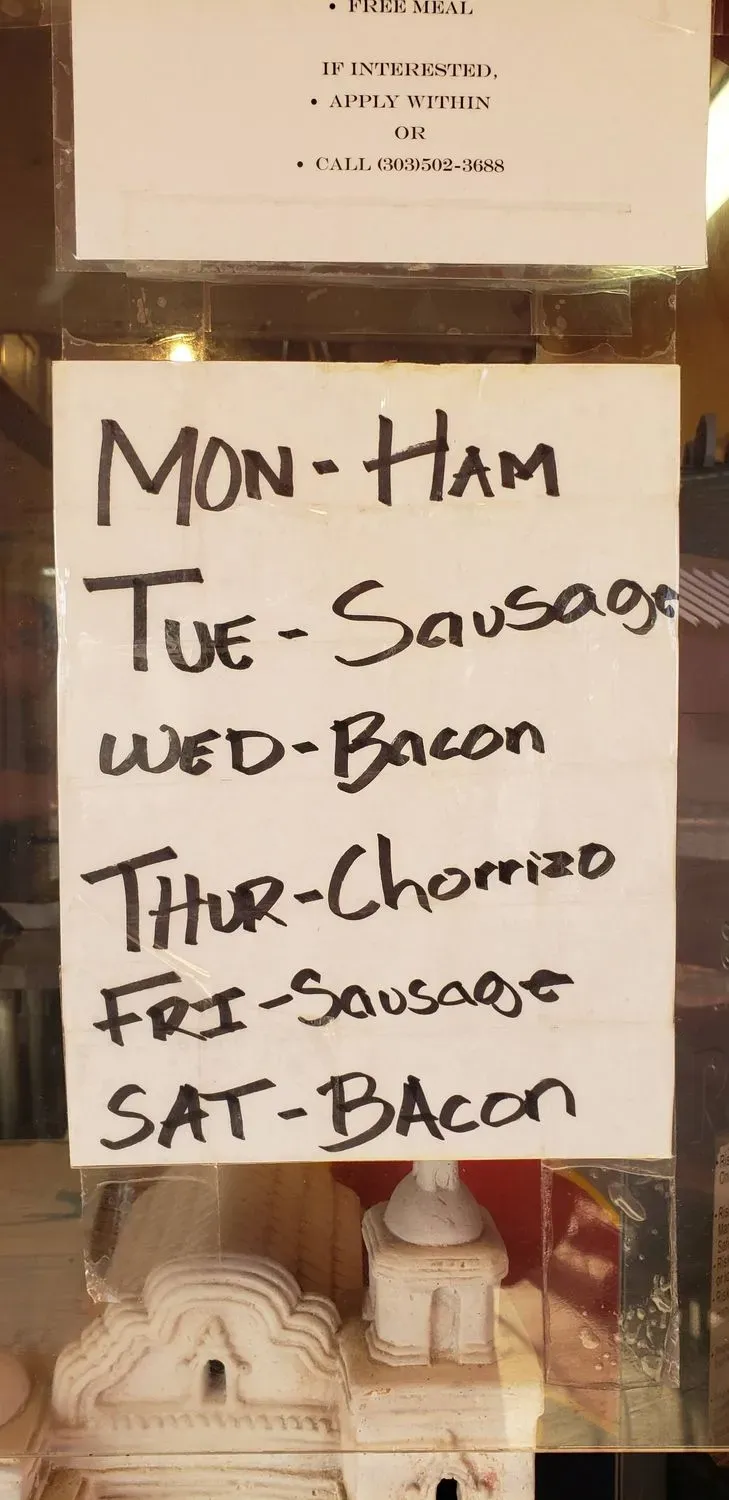 • FREE MEAL
IF INTERESTED,
• APPLY WITHIN
OR
• CALL (303)502-3688
MON - HAM
TUE - Sausage
WED - Bacon
THUR - Chorrizo
FRI - Sausage
SAT - BAcon